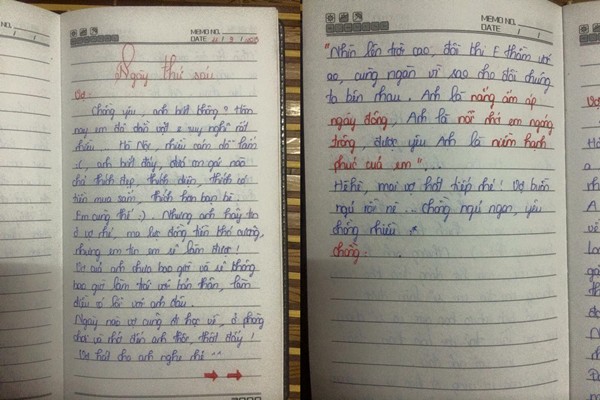 MEMO NO.
DATE / /
Ngày thứ sáu
Vợ:
Chồng yêu, anh biết không? Hôm
nay em đã dằn vặt & suy nghĩ rất
nhiều... Hà Nội, nhiều cám dỗ lắm
:(, anh biết đấy, dưới con gái nào
chả thích đẹp, thích diện, thích có
tiền mua sắm, thích hơn bạn bè
Em cũng thế :). Nhưng anh hãy tin
ở vợ nhé, ma lực đồng tiền khó cưỡng,
nhưng em tin em sẽ làm được!
Vợ của anh chưa bao giờ và sẽ không
bao giờ làm trái với bản thân, làm
điều có lỗi với anh đâu.
Ngày nào vợ cũng đi học về, ở phòng
chơi và nhớ đến anh thôi, thật đấy!
Vợ hát cho anh nghe nhé ^^
MEMO NO.
DATE / /
"Nhìn lên trời cao, đôi thì thầm với
sao, cùng ngàn vì sao cho đôi chúng
ta bên nhau. Anh là nắng ấm áp
ngày đông. Anh là nỗi nhớ em ngóng
trông, được yêu Anh là niềm hạnh
phúc của em"
Hihi, mai vợ hát tiếp nhé! Vợ buồn
ngủ rồi nè... chồng ngủ ngon, yêu
chồng nhiều
chồng:
MEMO NO.
DATE